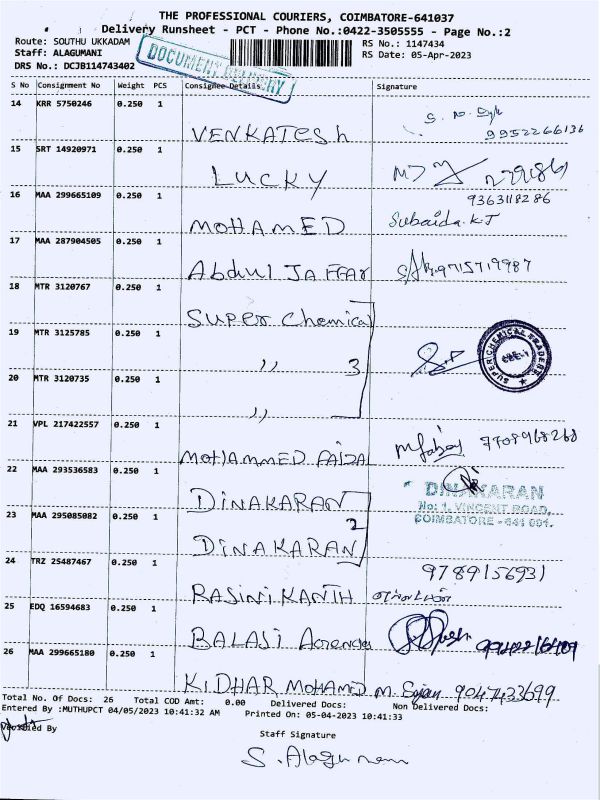 THE PROFESSIONAL COURIERS, COIMBATORE-641037
Delivery Runsheet - PCT - Phone No.:0422-3505555 - Page No.:2
Route: SOUTHU UKKADAM RS No.: 1147434
Staff: ALAGUMANI RS Date: 05-Apr-2023
DRS No.: DCJB114743402
DOCUMENT DELIVERY
S No Consignment No Weight PCS Consignee Details Signature
14 KRR 5750246 0.250 1
VENKATESh 9952266136
15 SRT 14920971 0.250 1
LUCKY
16 MAA 299665109 0.250 1 9363118286
MOHAMED Subaida.K.J
17 MAA 287904505 0.250 1
Abdul JAFFAR 9715719987
18 MTR 3120767 0.250 1
Super Chemical
19 MTR 3125785 0.250 1
,, 3
SUPER CHEMICAL TRADERS
20 MTR 3120735 0.250 1
,,
21 VPL 217422557 0.250 1
MOHAMMED FAIZAL 7708968268
22 MAA 293536583 0.250 1
DINAKARAN
DINAKARAN
No: 1, VINCENT ROAD,
COIMBATORE - 641 001.
23 MAA 295085082 0.250 1
2
DINAKARAN
24 TRZ 25487467 0.250 1 9789156931
RASINIKANTH
25 EDQ 16594683 0.250 1
BALAJI
26 MAA 299665180 0.250 1
KIDHAR MOHAMED 9047433699
Total No. Of Docs: 26 Total COD Amt: 0.00 Delivered Docs: Non Delivered Docs:
Entered By :MUTHUPCT 04/05/2023 10:41:32 AM Printed On: 05-04-2023 10:41:33
Verified By
Staff Signature
S. Alagumani